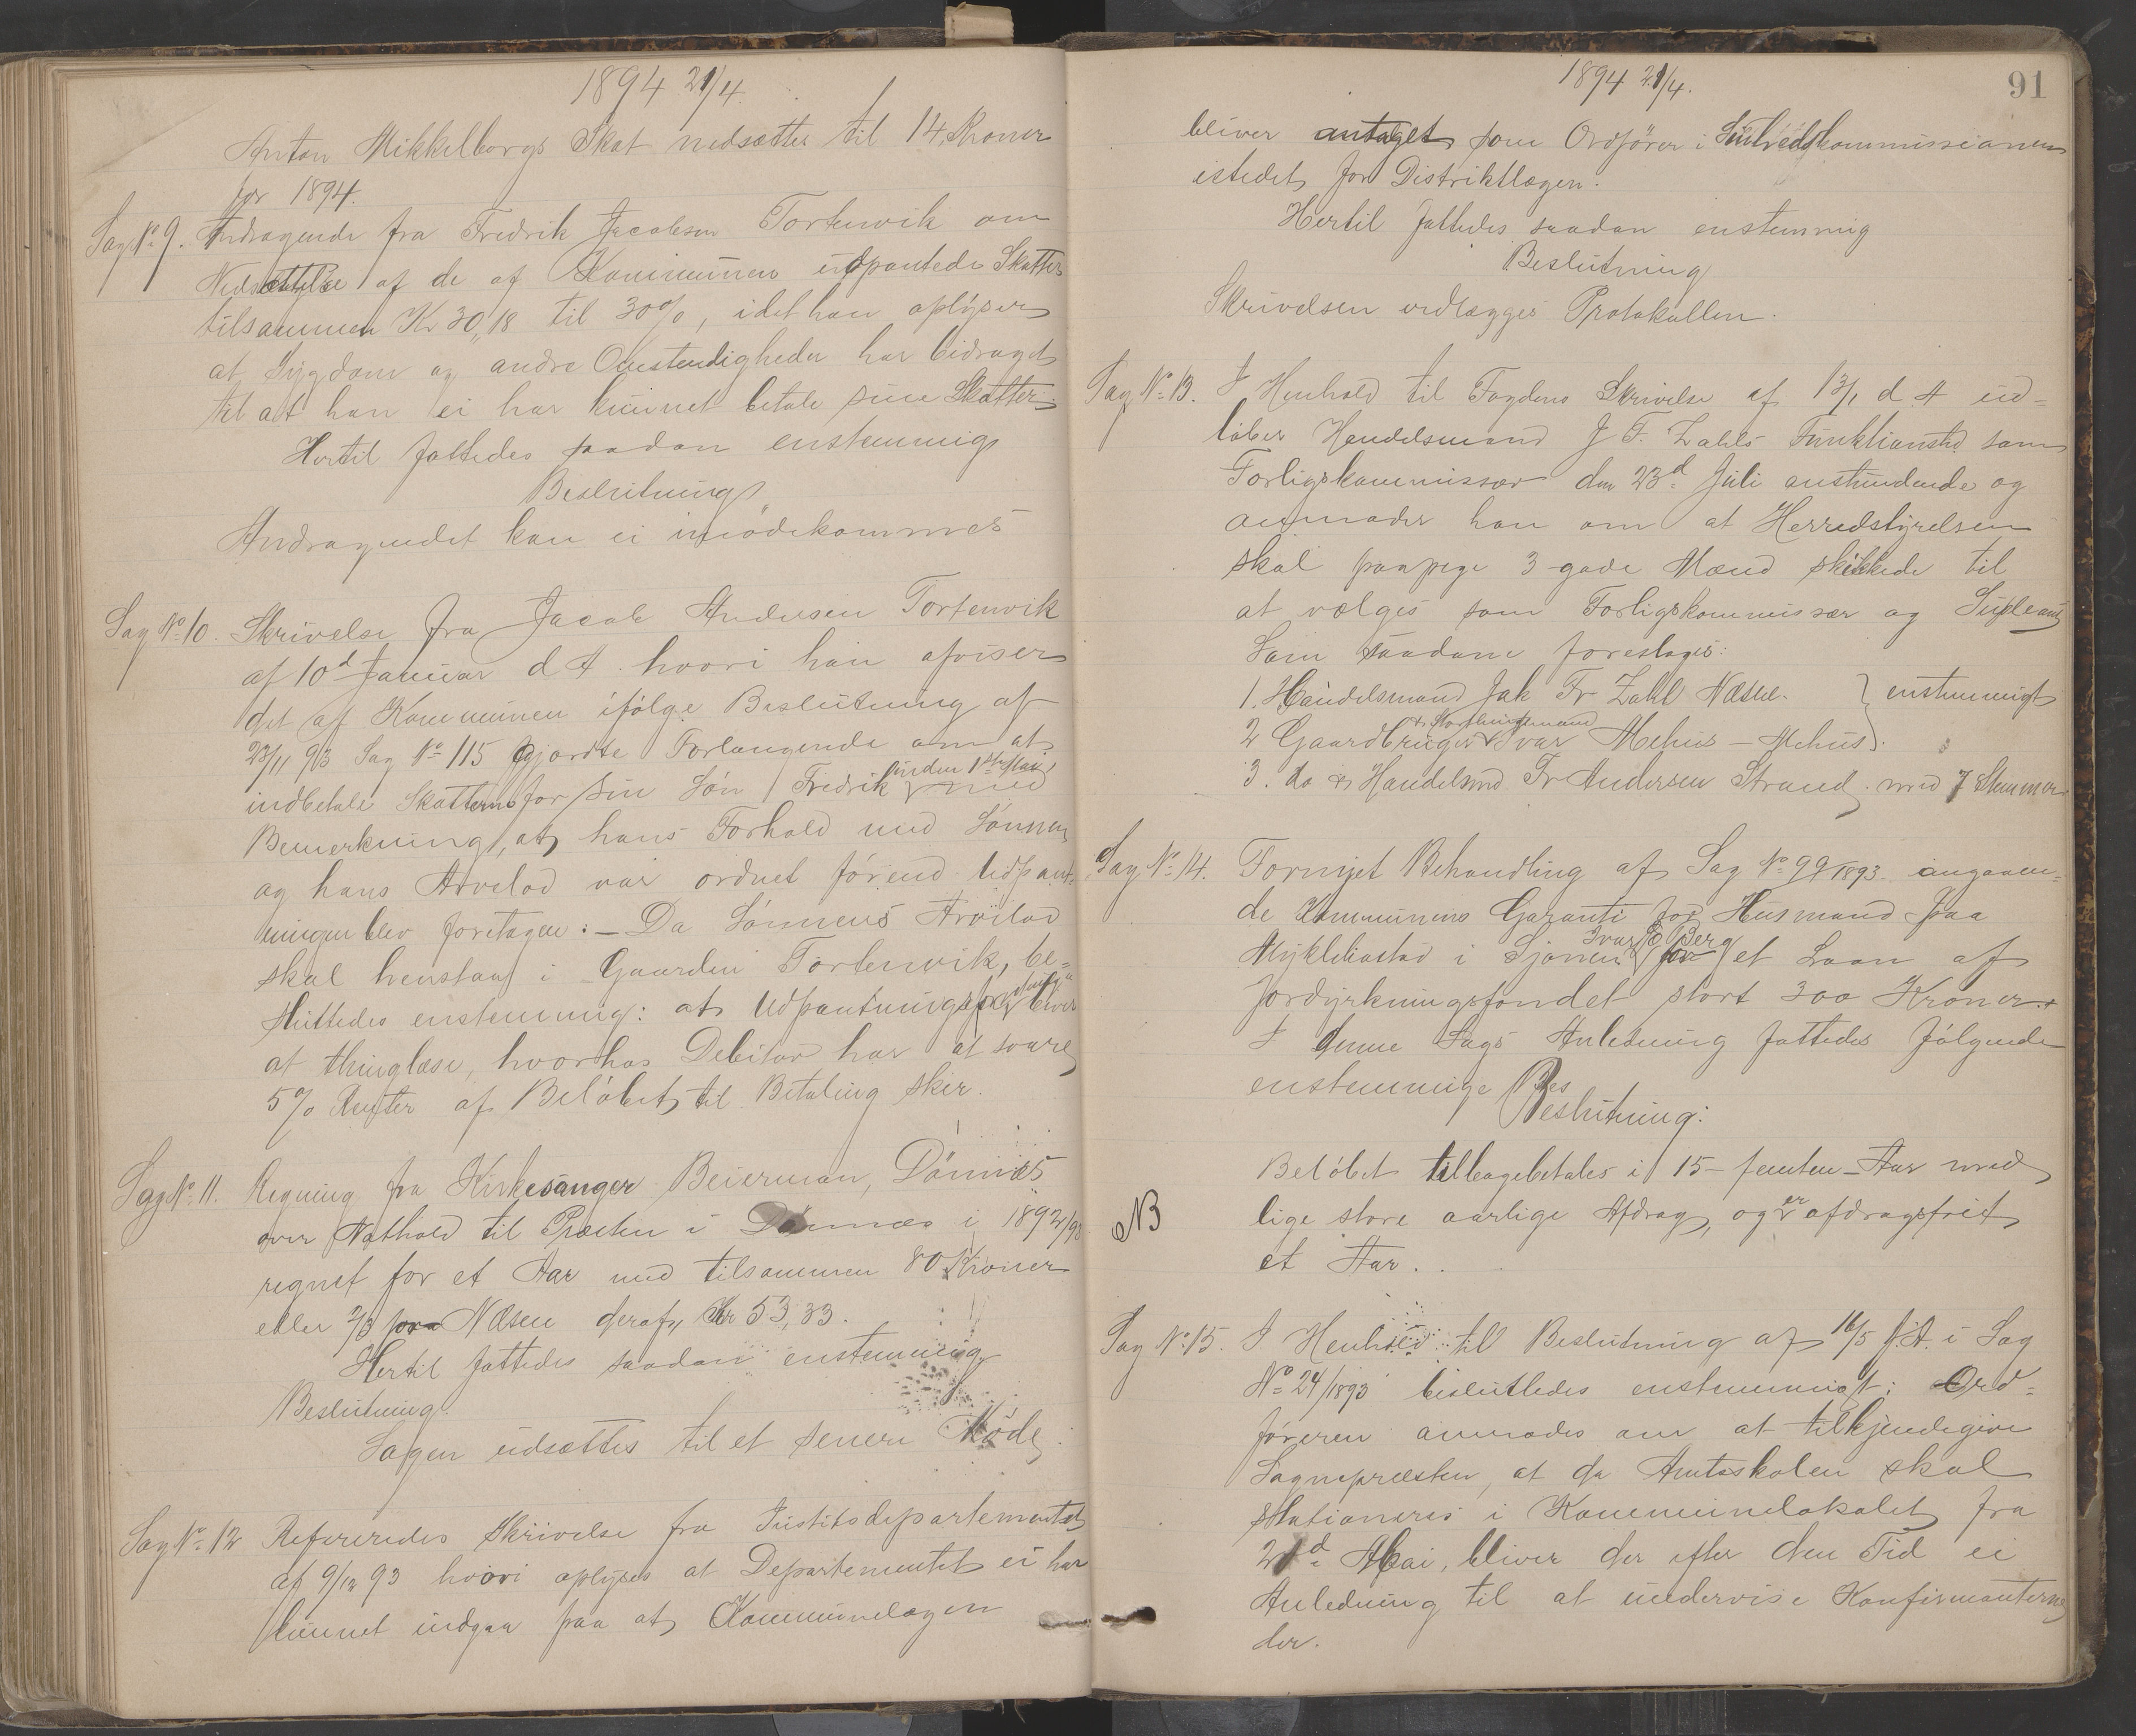 1894 21/4.
Anton Mikkelborgs Skat nedsættes til 14 Kroner
for 1894.
Sag No 9. Andragende fra Fredrik Jacobsen Tortenvik om
Nedsættelse af de af Kommunen udpantede Skatter
tilsammen Kr 30,18 til 30%, idet han oplyser
at Sygdom og andre Omstendigheder har bidraget
til at han ei har kunnet betale sine Skatter.
Hertil fattedes saadan enstemmig
Beslutning
Andragendet kan ei imødekommes
Sag No 10. Skrivelse fra Jacob Andersen Tortenvik
af 10d Januar d A. hvori han afviser
det af Kommunen ifølge Beslutning af
23/11 93 Sag No 115 gjordte Forlangende om at
indbetale Skatterne for sin Søn Fredrik inden 1ste Mai med
Bemerkning, at hans Forhold med Sønnen
og hans Arvelod var ordnet førend Udpant-
ningen blev foretagen: - Da Sønnens Arvelod
skal henstaa i Gaarden Tortenvik, be-
sluttedes enstemmig: at Udpantningsforretningen bliver
at thinglæse, hvorhos Debitor har at svare
5% Renter af Beløbet til Betaling sker.
Sag No 11. Regning fra Kirkesanger Beierman, Dønnæs
over Nathold til Præsten i Dønnæs i 1892/93
regnet for et Aar med tilsammen 80 Kroner
eller 2/3 for Næsne deraf, Kr 53,33.
Hertil fattedes saadan enstemmig
Beslutning.
Sagen udsættes til et senere Møde.
Sag No 12 Refereredes Skrivelse fra Justitsdepartementet
af 9/12 93 hvori oplyses at Departementet ei har
kunnet indgaa paa at Kommunelægen
1894 21/4.
91
bliver antaget som Ordfører i Sundhedskommissionen
istedet for Distriktlægen.
Hertil fattedes saadan enstemmig
Beslutning
Skrivelsen vedlægges Protokollen.
Sag No 13. I Henhold til Fogdens Skrivelse af 13/1 d A ud-
løber Handelsmand J F. Zahls Funktionstid som
Forligskommissær den 23d Juli anstundende og
anmoder han om at Herredstyrelsen
skal paapege 3 gode Mænd skikkede til
at vælges som Forligskommissær og Supleant
Som saadane foreslages:
1. Handelsmand Jak Fr Zahl Næsne. } enstemmigt
2 Gaardbruger & Storthingsmand Ivar Mehus - Mehus
3. do & Handelsmd Fr Andersen Strand. med 7 Stemmer
Sag No 14. Fornyet Behandling af Sag No 99/1893 angaaen-
de Kommunens Garanti for Husmand paa
Myklebostad i Sjonen Ivar O Berg for et Laan af
Jordyrkningsfondet stort 300 Kroner.
I denne Sags Anledning fattedes følgende
enstemmige Bes
Beslutning:
Beløbet tilbagebetales i 15 - femten - Aar med
NB lige store aarlige Afdrag, og er afdragsfrit
et Aar.
Sag No 15. I Henhold til Beslutning af 16/5 f. A. i Sag
No 24/1893 besluttedes enstemmigt: Ord-
føreren anmodes om at tilkjendegive
Sognepræsten, at da Amtsskolen skal
stationeres i Kommunelokalet fra
21d Mai, bliver der efter den Tid ei
Anledning til at undervise Konfirmanterne
der.